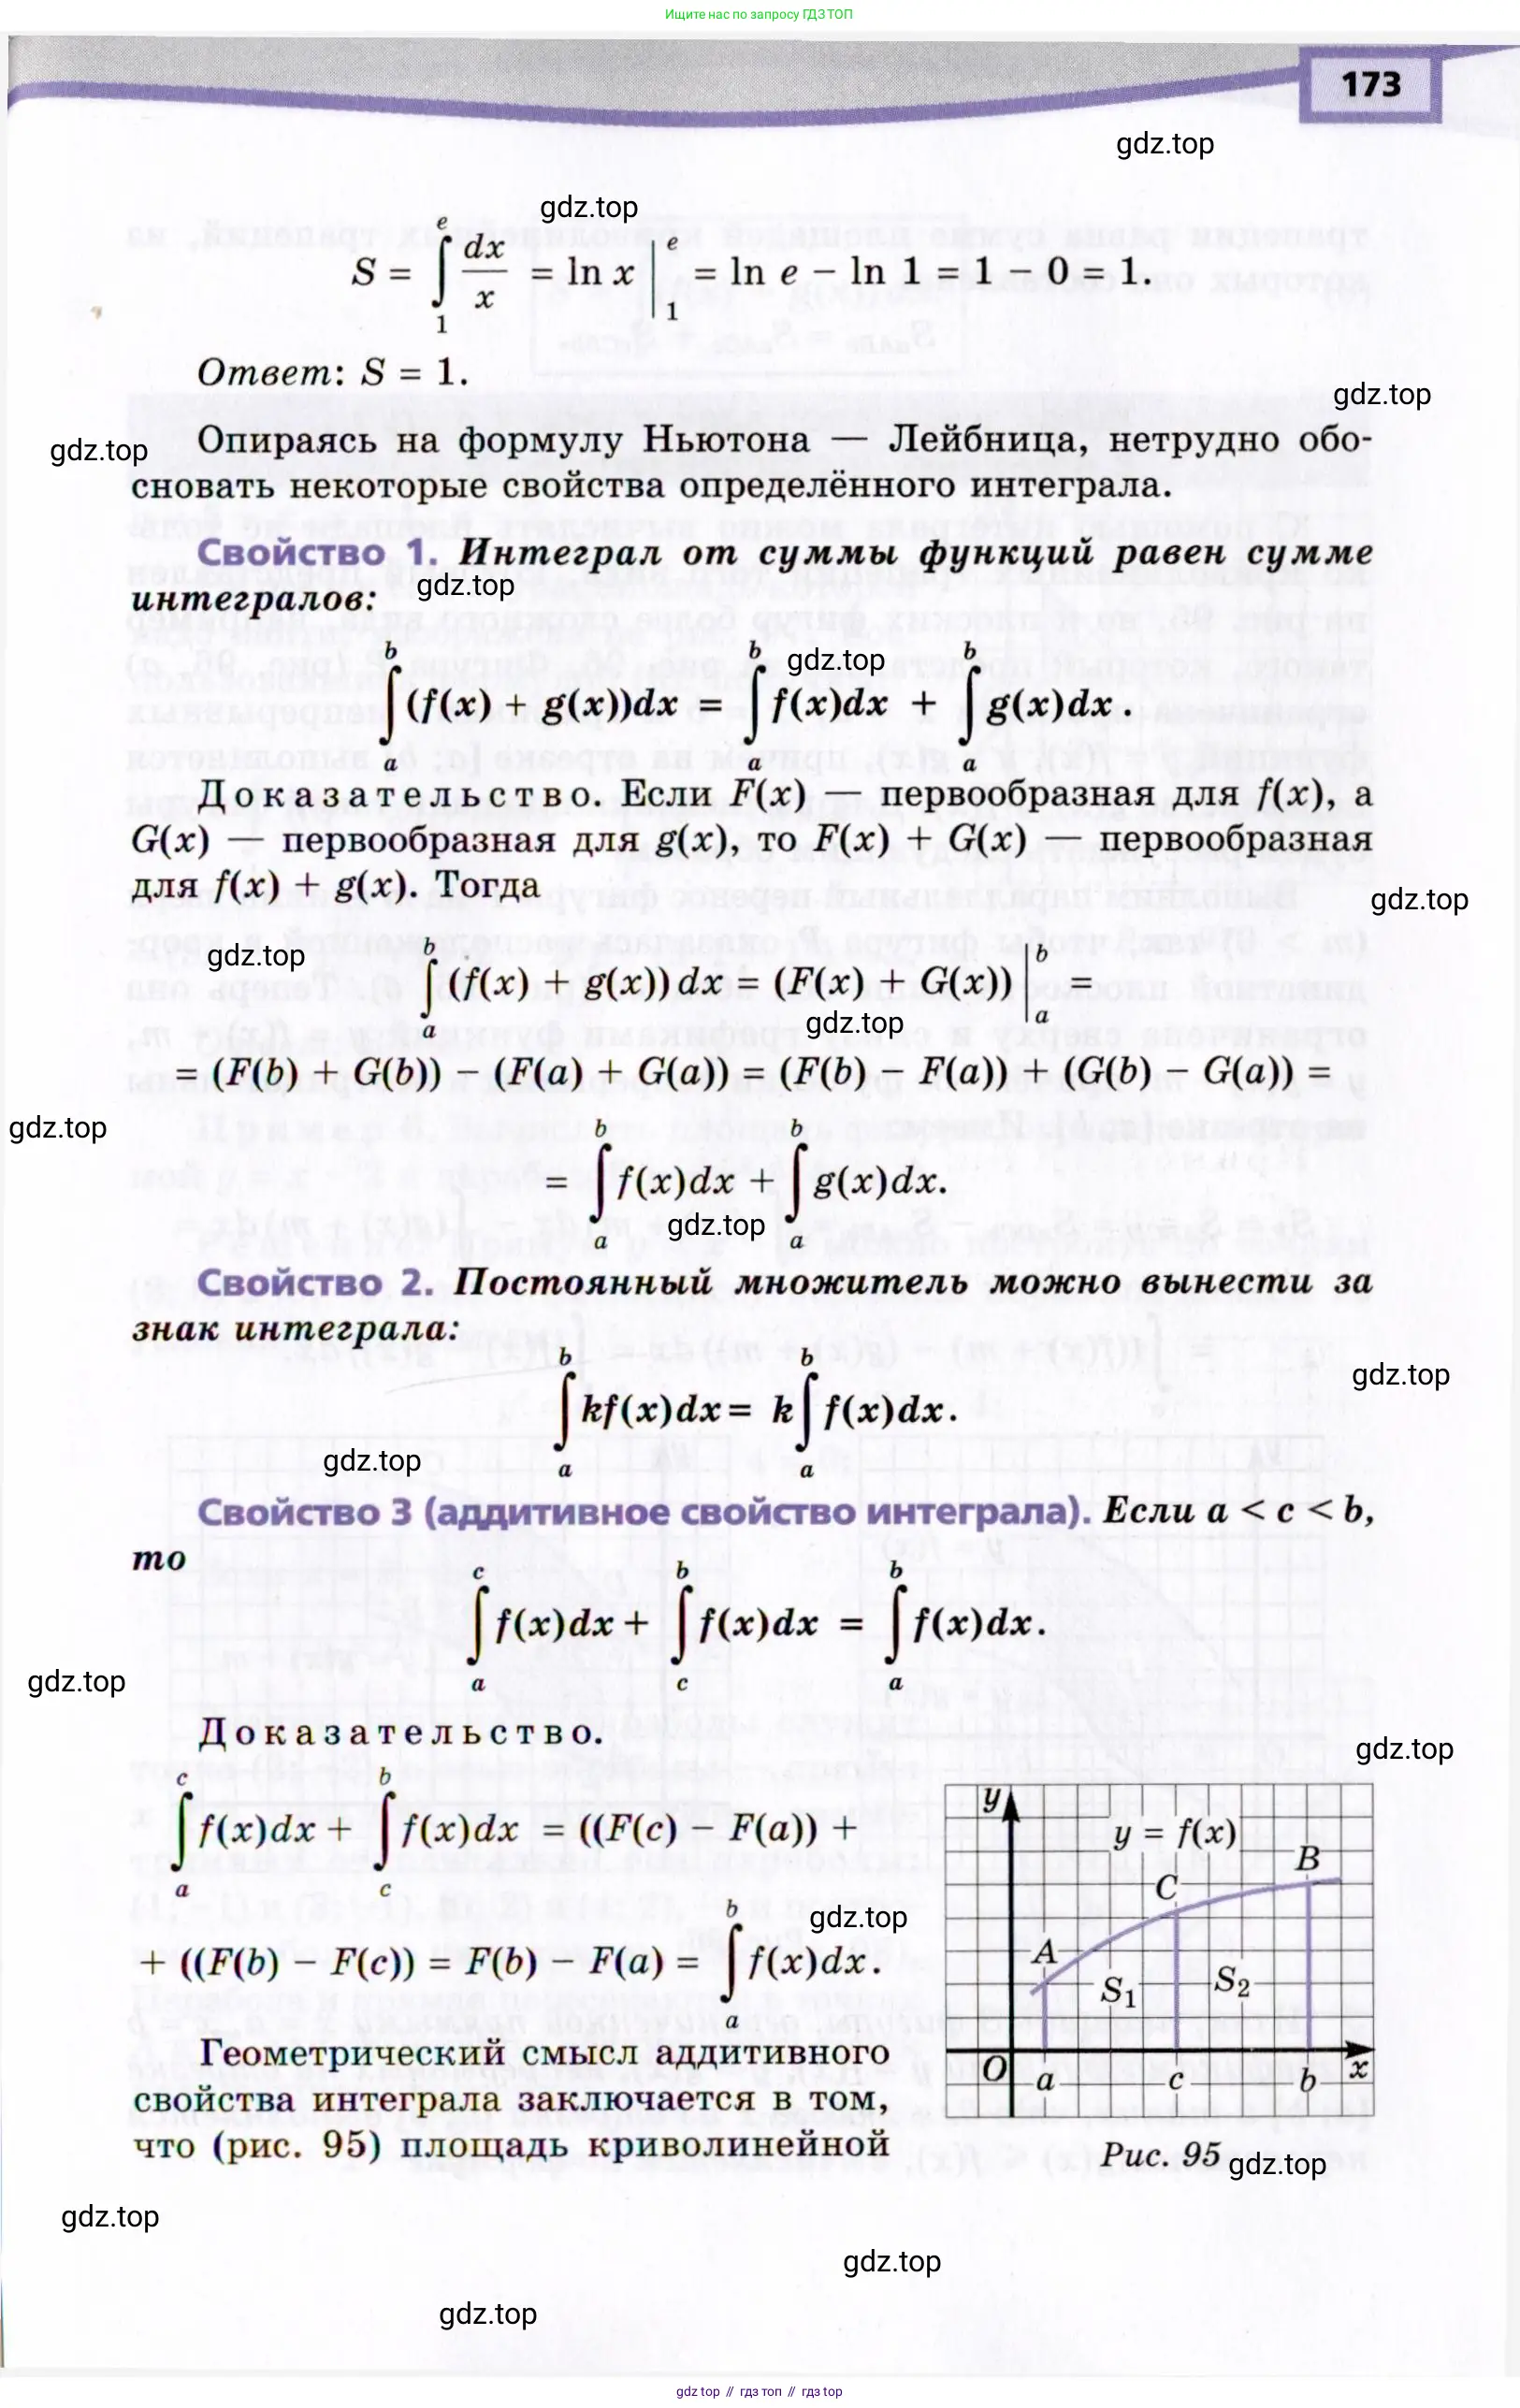 Ищите нас по запросу ГДЗ ТОП
173
gdz.top
gdz.top
S = ∫₁ᵉ dx/x = ln x |₁ᵉ = ln e − ln 1 = 1 − 0 = 1.
Ответ: S = 1.
gdz.top
Опираясь на формулу Ньютона — Лейбница, нетрудно обо-
gdz.top
сновать некоторые свойства определённого интеграла.
Свойство 1. Интеграл от суммы функций равен сумме
интегралов:
gdz.top
∫ₐᵇ (f(x) + g(x))dx = ∫ₐᵇ f(x)dx + ∫ₐᵇ g(x)dx.
gdz.top
Доказательство. Если F(x) — первообразная для f(x), а
G(x) — первообразная для g(x), то F(x) + G(x) — первообразная
для f(x) + g(x). Тогда
gdz.top
gdz.top
∫ₐᵇ (f(x) + g(x)) dx = (F(x) + G(x)) |ₐᵇ =
gdz.top
= (F(b) + G(b)) − (F(a) + G(a)) = (F(b) − F(a)) + (G(b) − G(a)) =
gdz.top
= ∫ₐᵇ f(x)dx + ∫ₐᵇ g(x)dx.
gdz.top
Свойство 2. Постоянный множитель можно вынести за
знак интеграла:
∫ₐᵇ kf(x)dx = k∫ₐᵇ f(x)dx.
gdz.top
gdz.top
Свойство 3 (аддитивное свойство интеграла). Если a < c < b,
то
∫ₐᶜ f(x)dx + ∫꜀ᵇ f(x)dx = ∫ₐᵇ f(x)dx.
gdz.top
Доказательство.
gdz.top
∫ₐᶜ f(x)dx + ∫꜀ᵇ f(x)dx = ((F(c) − F(a)) +
+ ((F(b) − F(c)) = F(b) − F(a) = ∫ₐᵇ f(x)dx.
gdz.top
Геометрический смысл аддитивного
свойства интеграла заключается в том,
что (рис. 95) площадь криволинейной
y
y = f(x)
B
C
A
S₁
S₂
O
a
c
b
x
Рис. 95
gdz.top
gdz.top
gdz.top
gdz.top
gdz top // гдз топ // гдз top